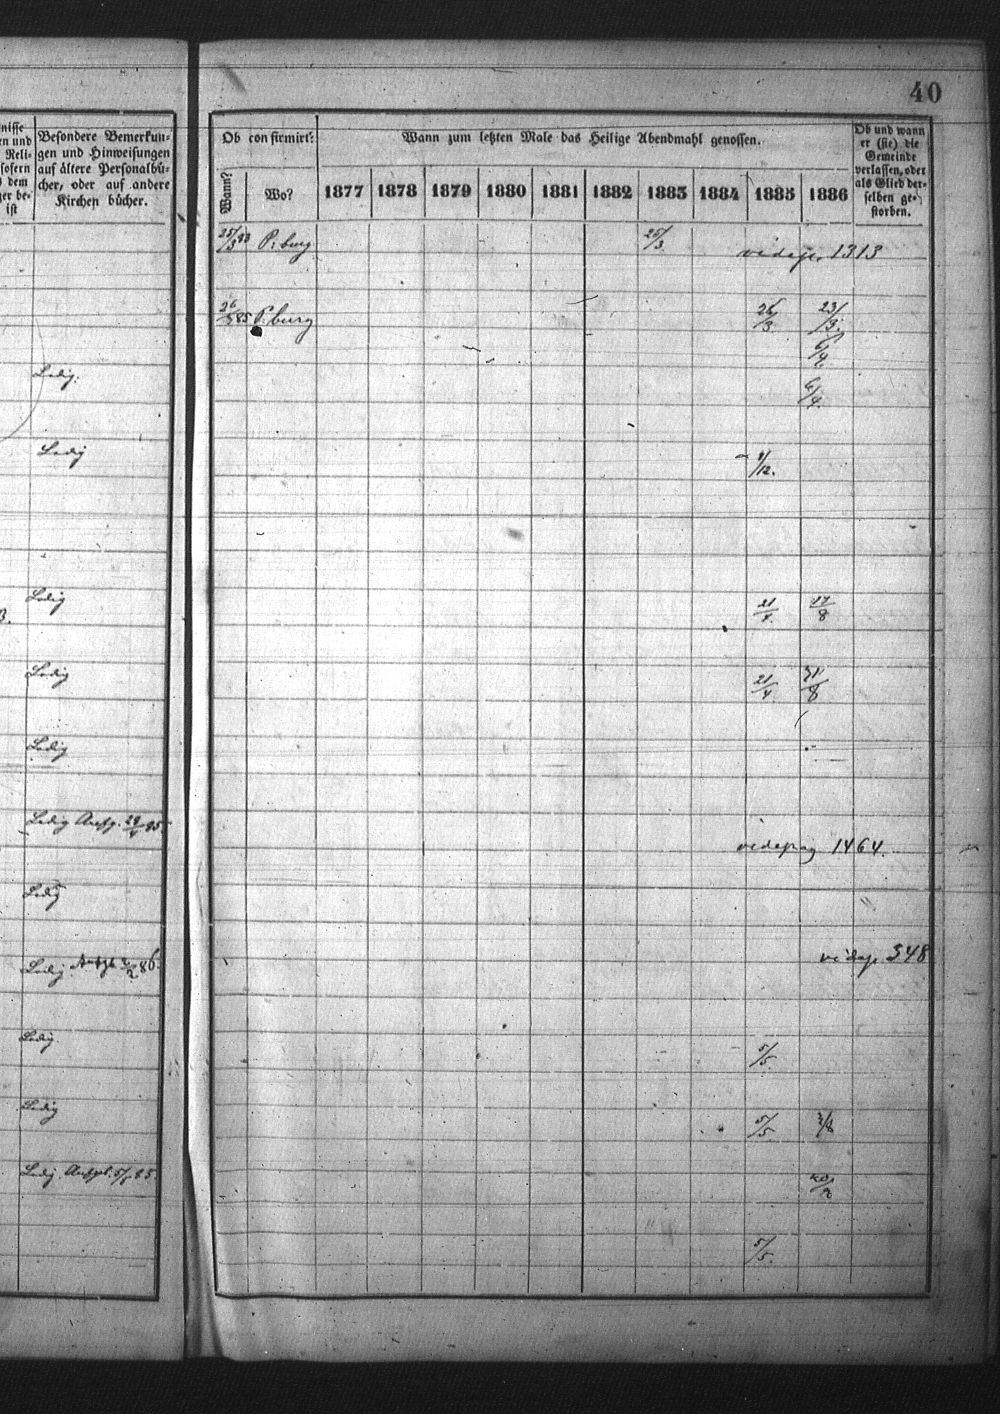 40
nisse
en und
Reli-
sofern
dem
ger be-
ist
Besondere Bemerkun-
gen und Hinweisungen
auf ältere Personalbü-
cher, oder auf andere
Kirchen bücher.
Ob confirmirt:
Wann?
Wo?
Wann zum letzten Male das Heilige Abendmahl genossen.
1877 1878 1879 1880 1881 1882 1883 1884 1885 1886
Ob und wann
er (sie) die
Gemeinde
verlassen, oder
als Glied der-
selben ge-
storben.
25/3 83 P. burg 25/3 vide p. 1313
26/3 85 P. burg 26/3 23/3.
6/4.
Ledig. 6/4.
Ledig 1/12.
Ledig 21/4. 17/8
3.
Ledig 21/4. 31/8
Ledig
Ledig Aufg. 28/4 85 vide pag 1464.
Ledig
Ledig 2/2 86. vide p. 348
Ledig 5/5.
Ledig 5/5.
Ledig. 85. 20/2
5/5.